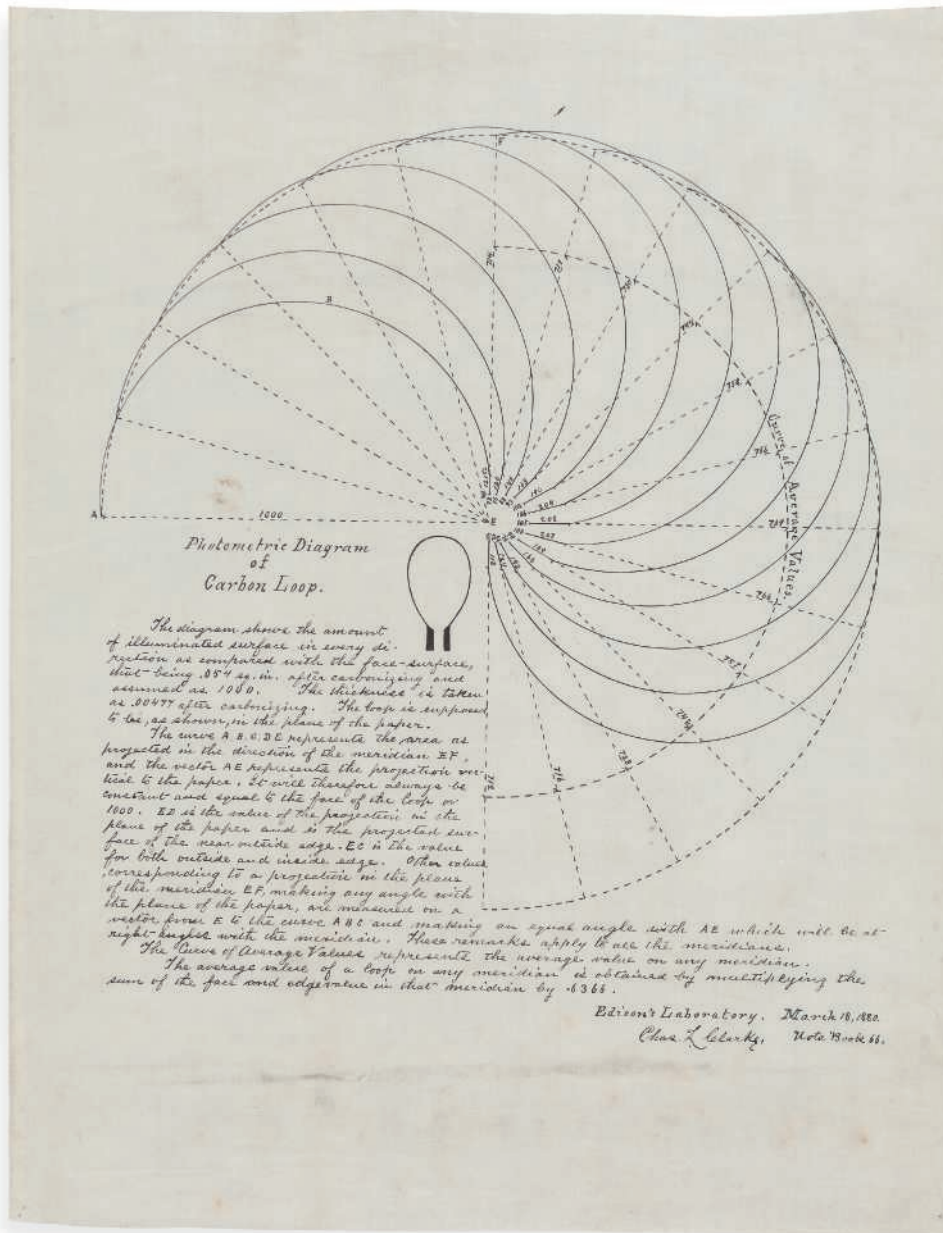 A
B
E
1000
Curve of Average Values.
Photometric Diagram
of
Carbon Loop.
The diagram shows the amount
of illuminated surface in every di-
rection as compared with the face-surface,
that being .054 sq. in. after carbonizing and
assumed as 1000. The thickness is taken
as .00477 after carbonizing. The loop is supposed
to be, as shown, in the plane of the paper.
The curve A.B.C.D.E represents the area as
projected in the direction of the meridian EF,
and the vector AE represents the projection ver-
tical to the paper. It will therefore always be
constant and equal to the face of the loop or
1000. ED is the value of the projection in the
plane of the paper and is the projected sur-
face of the near outside edge. EC is the value
for both outside and inside edge. Other values
corresponding to a projection in the plane
of the meridian EF, making any angle with
the plane of the paper, are measured on a
vector from E to the curve ABC and making an equal angle with AE which will be at
right-angles with the meridian. These remarks apply to all the meridians.
The Curve of Average Values represents the average value on any meridian.
The average value of a loop on any meridian is obtained by multiplying the
sum of the face and edge value in that meridian by .6366.
Edison's Laboratory. March 18, 1880.
Chas. L. Clarke, Note Book 66.